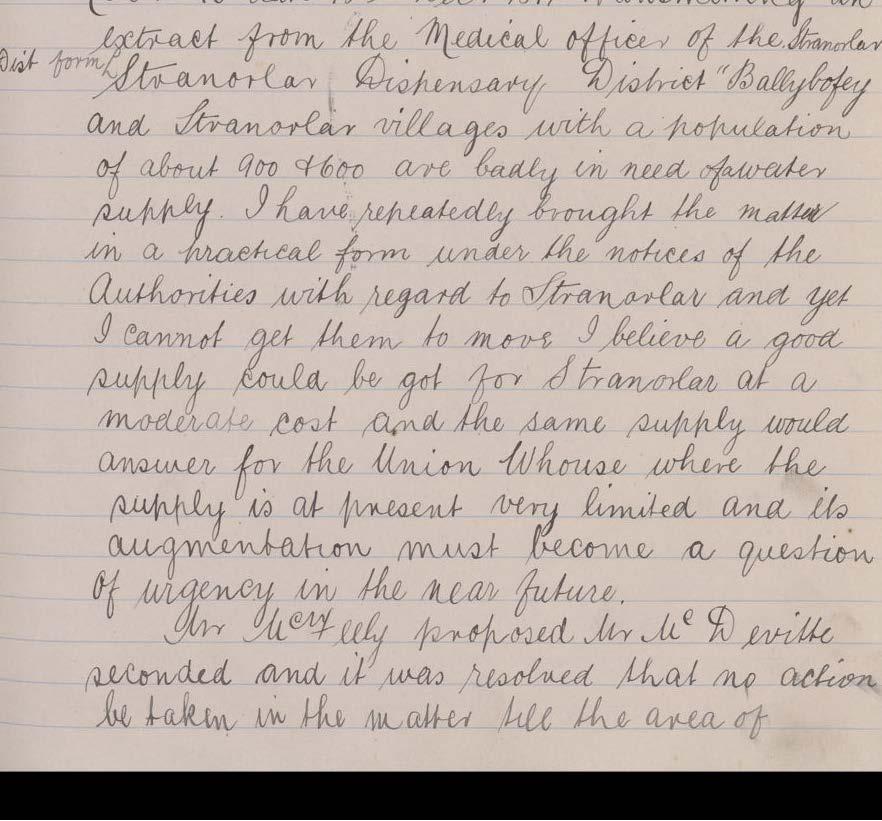 extract from the Medical officer of the Stranorlar
Dist form
Stranorlar Dispensary District "Ballybofey
and Stranorlar villages with a population
of about 900 & 600 are badly in need of a water
supply. I have repeatedly brought the matter
in a practical form under the notices of the
Authorities with regard to Stranorlar and yet
I cannot get them to move I believe a good
supply could be got for Stranorlar at a
moderate cost and the same supply would
answer for the Union Whouse where the
supply is at present very limited and its
augmentation must become a question
of urgency in the near future.
Mr McNeely proposed Mr Mc Devitte
seconded and it was resolved that no action
be taken in the matter till the area of